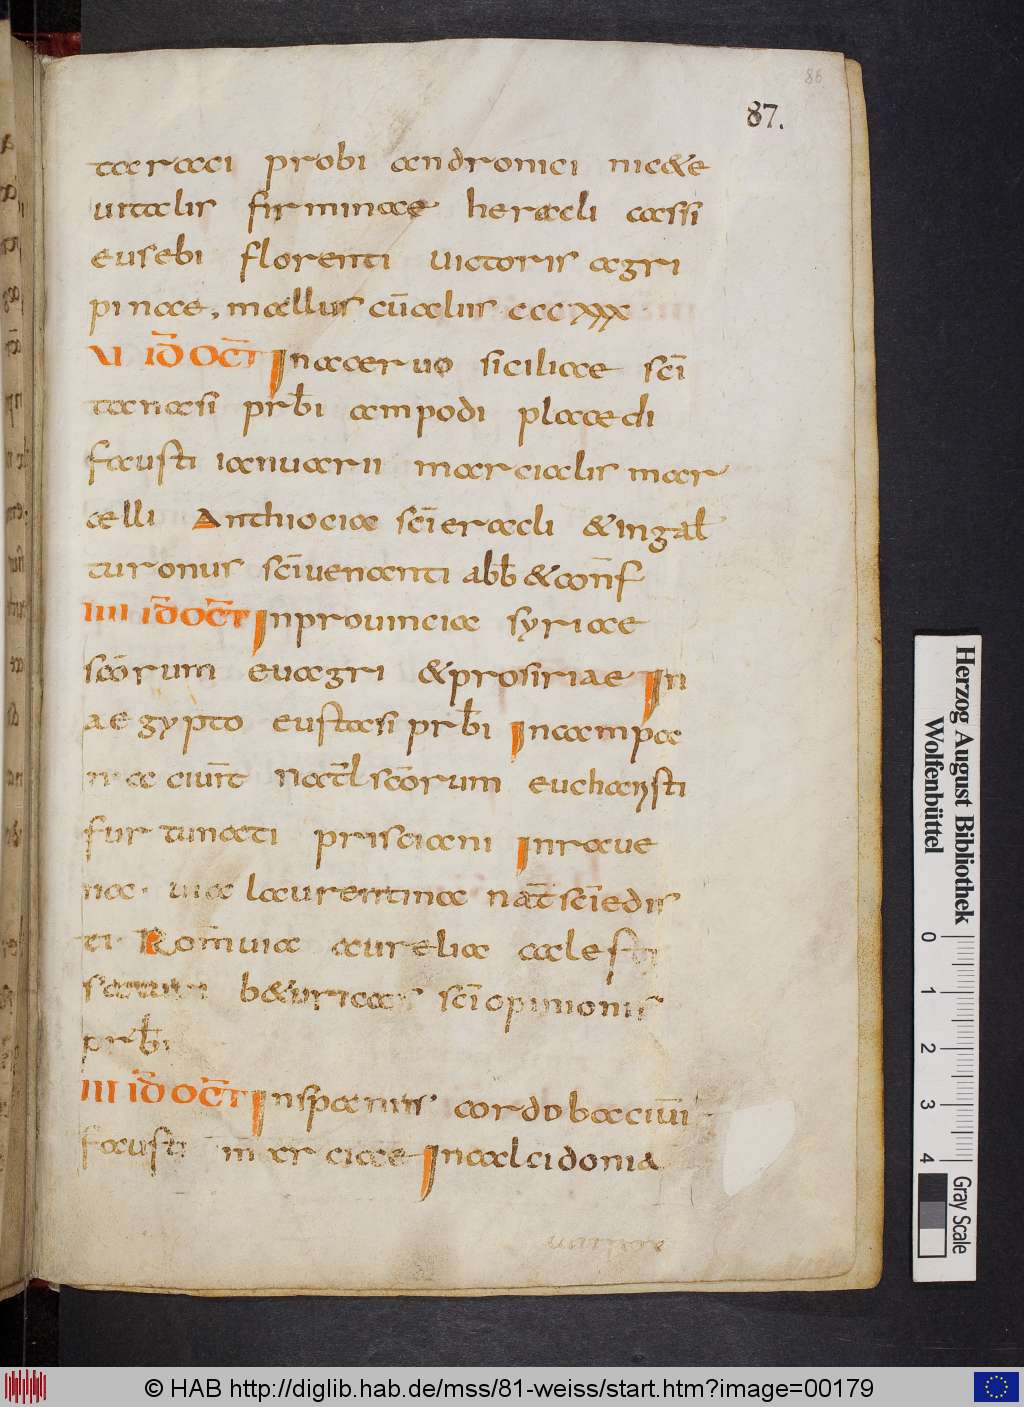 86
87.
taraci probi andronici nicete
uitalis firminae heracli cassi
eusebi florenti uictoris agri
pinae, mallus cū aliis cccxxx
VI ID̄ OCT̄ In aceruo siciliae sc̄i
tanasi prb̄i ampodi placedi
fausti ianuarii marcialis mar
celli Anthiocia sc̄i eracli & in gal̄
turonus sc̄i uenanti abb̄ & conf̄
IIII ID̄ OCT̄ In prouincia syriae
sc̄orum euagri & prosiriae In
aegypto eustasi prb̄i In campa
nia ciuit̄ nat̄l sc̄orum eucharisti
furtunati prisciani In raue
na. uia laurentina nat̄ sc̄i edis
ti. Rom̄ uia aurelia calesti
b&uricas sc̄i opinionis
prb̄i
III ID̄ OCT̄ In spaniis cordoba ciūi
fausti marciae In calcidonia
Herzog August Bibliothek
Wolfenbüttel
0 1 2 3 4
Gray Scale
© HAB http://diglib.hab.de/mss/81-weiss/start.htm?image=00179